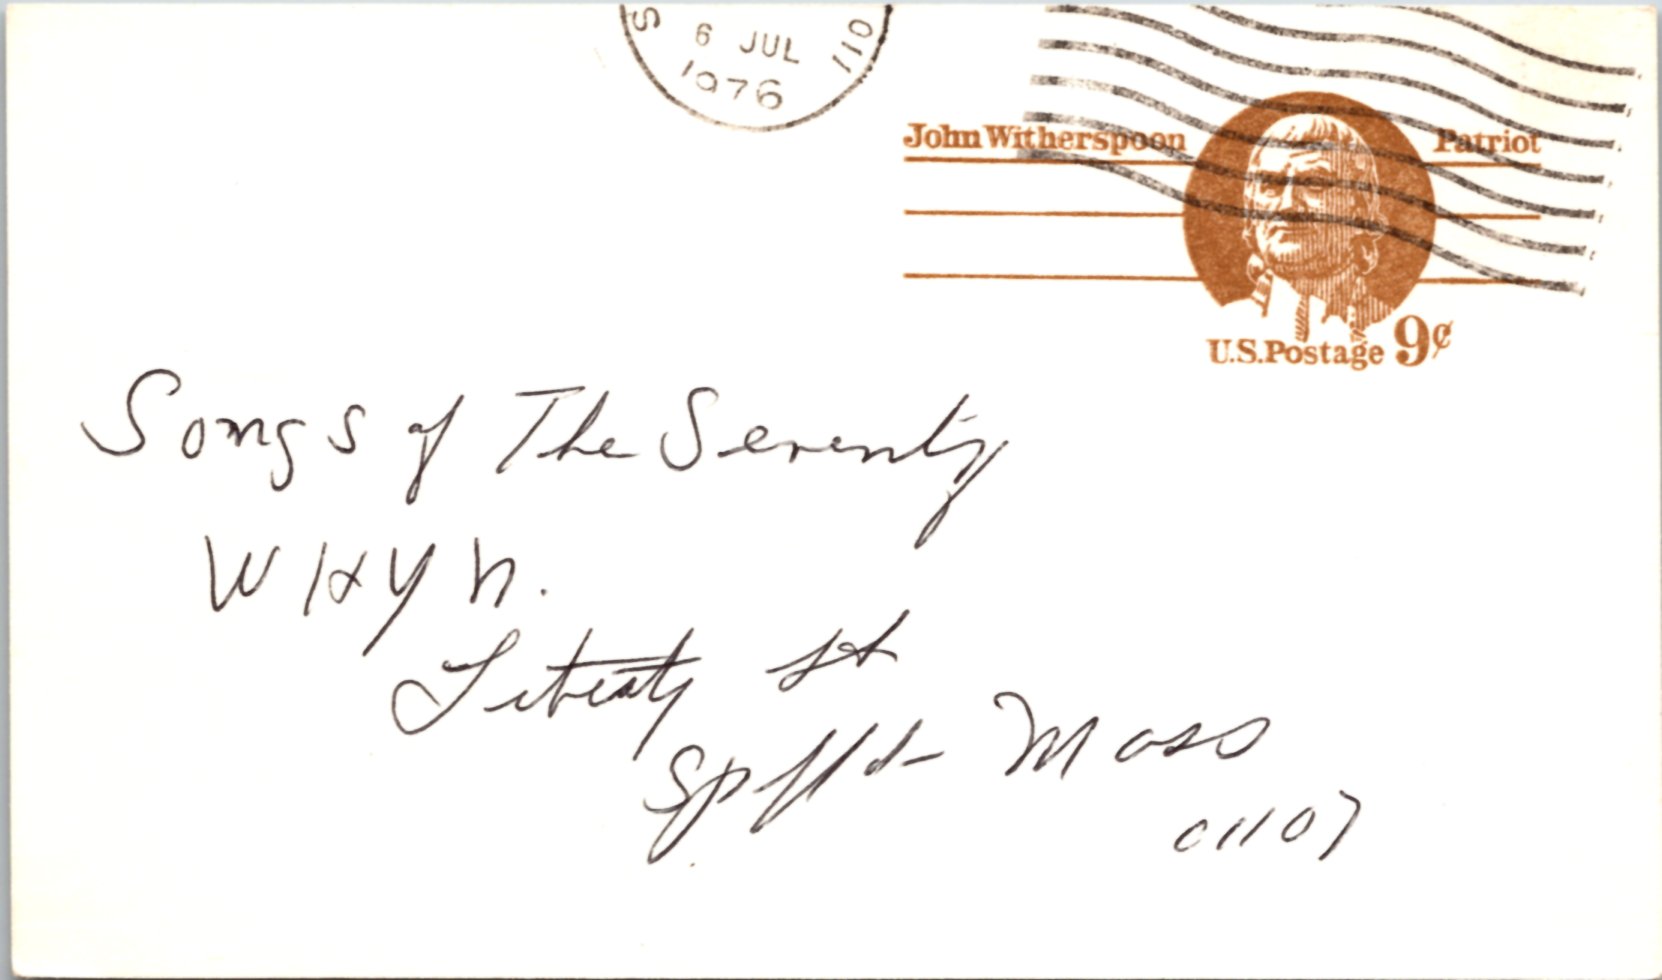 S 6 JUL 011
1976
John Witherspoon Patriot
U.S.Postage 9¢
Songs of The Seventy
WHYN.
Liberty St
Spffld Mass
01107